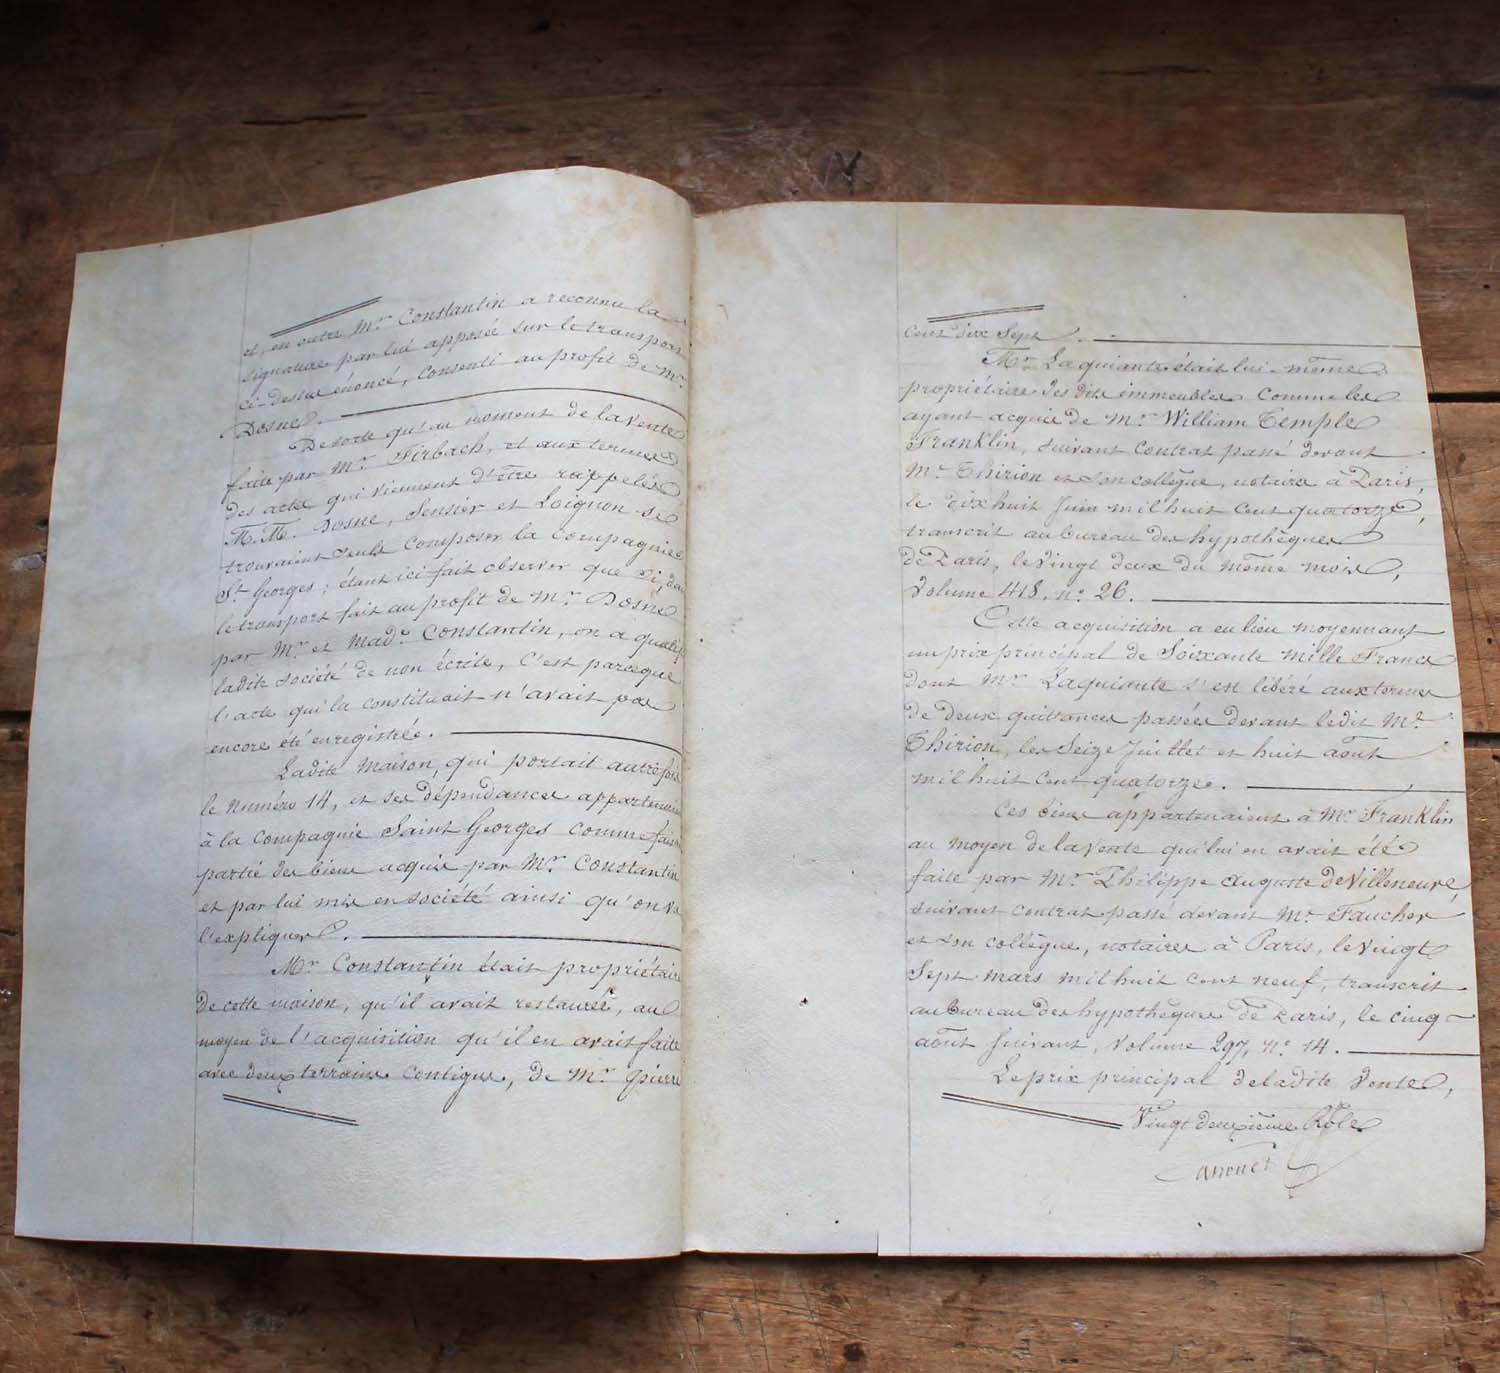 et, en outre Mr. Constantin a reconnu la
signature par lui apposée sur le transport
ci-dessus énoncé, consenti au profit de Mr.
Dosne.
De sorte qu'au moment de la vente
faite par Mr. Firbach, et aux termes
des actes qui viennent d'être rappelés
M.M. Dosne, Sensier et Loignon se
trouvaient seuls composer la Compagnie
St. Georges; étant ici fait observer que si, dans
le transport fait au profit de Mr. Dosne
par Mr. et Made. Constantin, on a qualifié
ladite société de non écrite, C'est parceque
l'acte qui la constituait n'avait pas
encore été enregistrée.
Ladite Maison, qui portait autrefois
le Numéro 14, et ses dépendances appartenaient
à la Compagnie Saint Georges comme faisant
partie des biens acquis par Mr. Constantin
et par lui mis en société ainsi qu'on va
l'expliquer.
Mr. Constantin était propriétaire
de cette maison, qu'il avait restaurée, au
moyen de l'acquisition qu'il en avait faite
avec deux terrains contigus, de Mr. Pierre
cent dix Sept.
Mr. Laquiante était lui-même
propriétaire des dits immeubles Comme les
ayant acquis de Mr. William Temple
Franklin, suivant Contrat passé devant
Me. Thirion et son collègue, notaires à Paris,
le dix huit Juin mil huit cent quatorze,
transcrit au bureau des hypothèques
de Paris, le vingt deux du même mois,
Volume 418, no. 26.
Cette acquisition a eu lieu moyennant
un prix principal de Soixante mille Francs
dont Mr. Laquiante s'est libéré aux termes
de deux quittances passées devant ledit Me.
Thirion, les Seize Juillet et huit août
mil huit cent quatorze.
Ces biens appartenaient à Mr. Franklin
au moyen de la vente qui lui en avait été
faite par Mr. Philippe Auguste de Villeneuve,
suivant contrat passé devant Me. Faucher
et son collègue, notaires à Paris, le vingt
Sept mars mil huit cent neuf, transcrit
au bureau des hypothèques de Paris, le cinq
août Suivant, Volume 297, No. 14.
Le prix principal de ladite vente,
Vingt deuxième Rôle